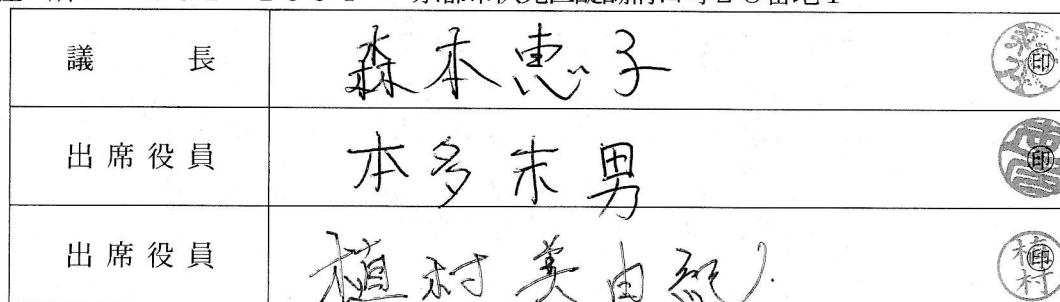 議長 森本恵子 印
出席役員 本多末男 印
出席役員 植村美由紀 印